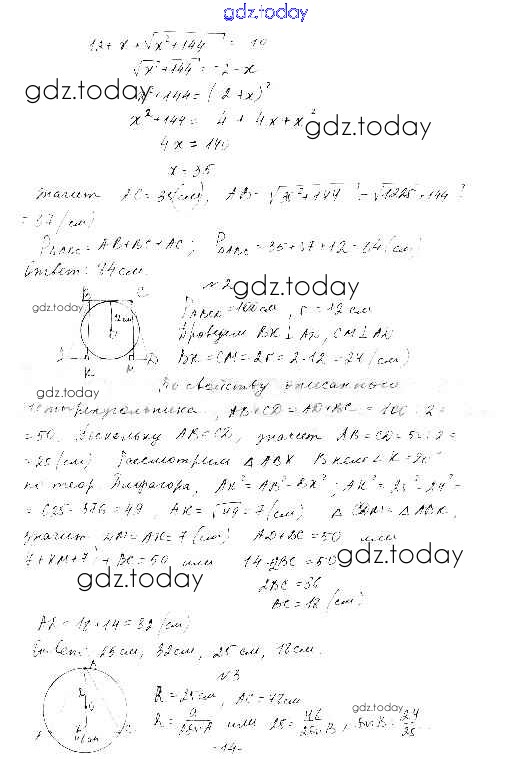 gdz.today
12 + x + √x²+144 = 10
√x²+144 = -2-x
gdz.today
x²+144 = (2+x)²
x²+144 = 4 + 4x + x²
gdz.today
4x = 140
x = 35
значит AC = 35(см), AB = √x²+144 = √1225+144 =
= 37(см)
P△ABC = AB+BC+AC; P△ABC = 35+37+12 = 84(см)
Ответ: 84 см.
№2
gdz.today
B C
gdz.today
P = 100 см, r = 12 см
Проведем BK ⊥ AD, CM ⊥ AD
K M
BK = CM = 2r = 2·12 = 24(см)
gdz.today
По свойству описанного
четырехугольника, AB+CD = AD+BC = 100:2 =
= 50. Поскольку AB=CD, значит AB = CD = 50:2 =
= 25(см) Рассмотрим △ABK В нем ∠K = 90°
по теор. Пифагора, AK² = AB² - BK²; AK² = 25² - 24² =
= 625 - 576 = 49, AK = √49 = 7(см) △CDM = △ABK,
gdz.today
значит DM = AK = 7(см) AD+BC = 50 или
7+KM+7+BC = 50 или 14+2BC = 50
gdz.today
gdz.today
2BC = 36
BC = 18(см)
AD = 18+14 = 32(см)
Ответ: 25см, 32см, 25см, 18см.
№3
B
R = 25см, AC = 48см
gdz.today
-14-